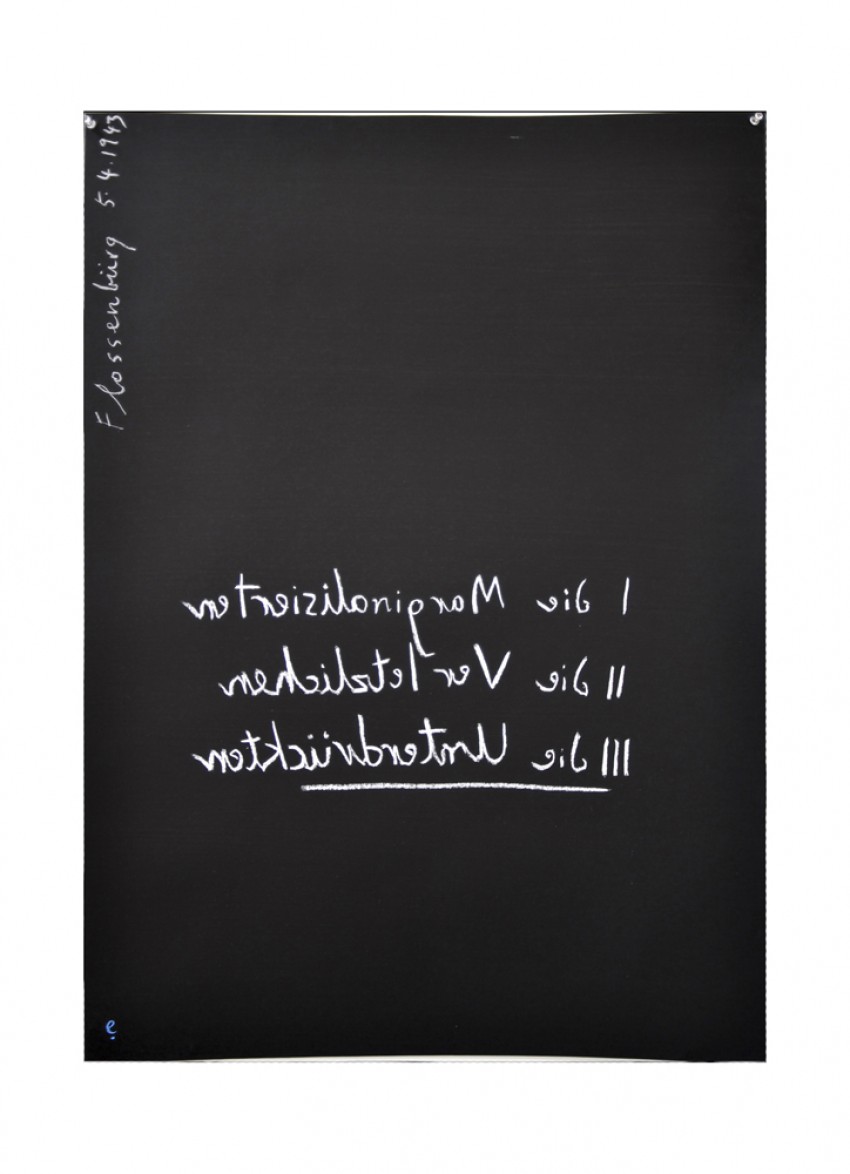 Flossenbürg 5.4.1943
I die Marginalisierten
II die Verletzlichen
III die Unterdrückten
e.